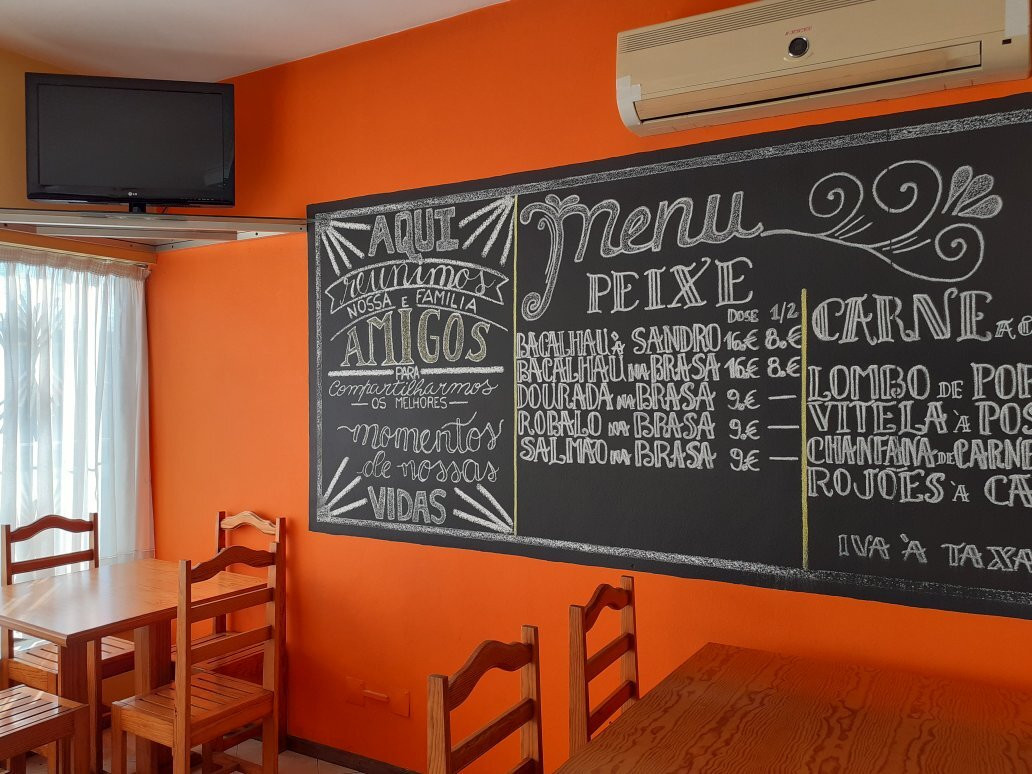 LG
AQUI
reunimos
NOSSA E FAMILIA
AMIGOS
PARA
Compartilharmos
OS MELHORES
momentos
de nossas
VIDAS
Menu
PEIXE
DOSE 1/2
BACALHAU À SANDRO 16.€ 8.€
BACALHAU NA BRASA 16€ 8.€
DOURADA NA BRASA 9.€ —
ROBALO NA BRASA 9.€ —
SALMÃO NA BRASA 9€ —
CARNE
LOMBO DE POR
VITELA À POS
CHANFANA DE CARNE
ROJÓES À CA
IVA À TAXA